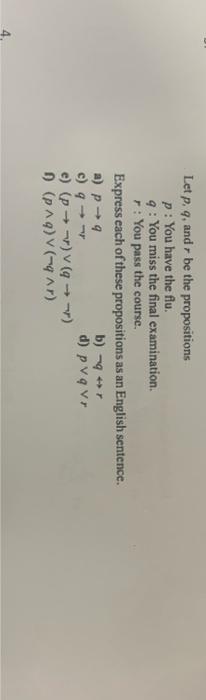 Let p, q, and r be the propositions
p : You have the flu.
q : You miss the final examination.
r : You pass the course.
Express each of these propositions as an English sentence.
a) p → q b) ¬q ↔ r
c) q → ¬r d) p ∨ q ∨ r
e) (p → ¬r) ∨ (q → ¬r)
f) (p ∧ q) ∨ (¬q ∧ r)
4.